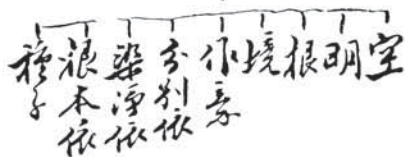 空
明
根
境
作意
分別依
染淨依
根本依
種子